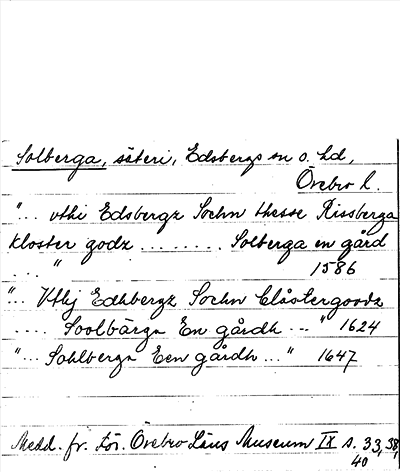 Solberga, säteri, Edsbergs sn o. hd,
Örebro l.
"... vthi Edsbergz Sochn thesse Rissberga
kloster godz ........ Solberga en gård
... " 1586
"... Vthj Edhbergz Sochn Clåstergoodz
.... Soolbärga En gårdh ..." 1624
"... Sahlberga Een gårdh ..." 1647
Medd. fr. För. Örebro Läns Museum IX s. 33, 38,
40